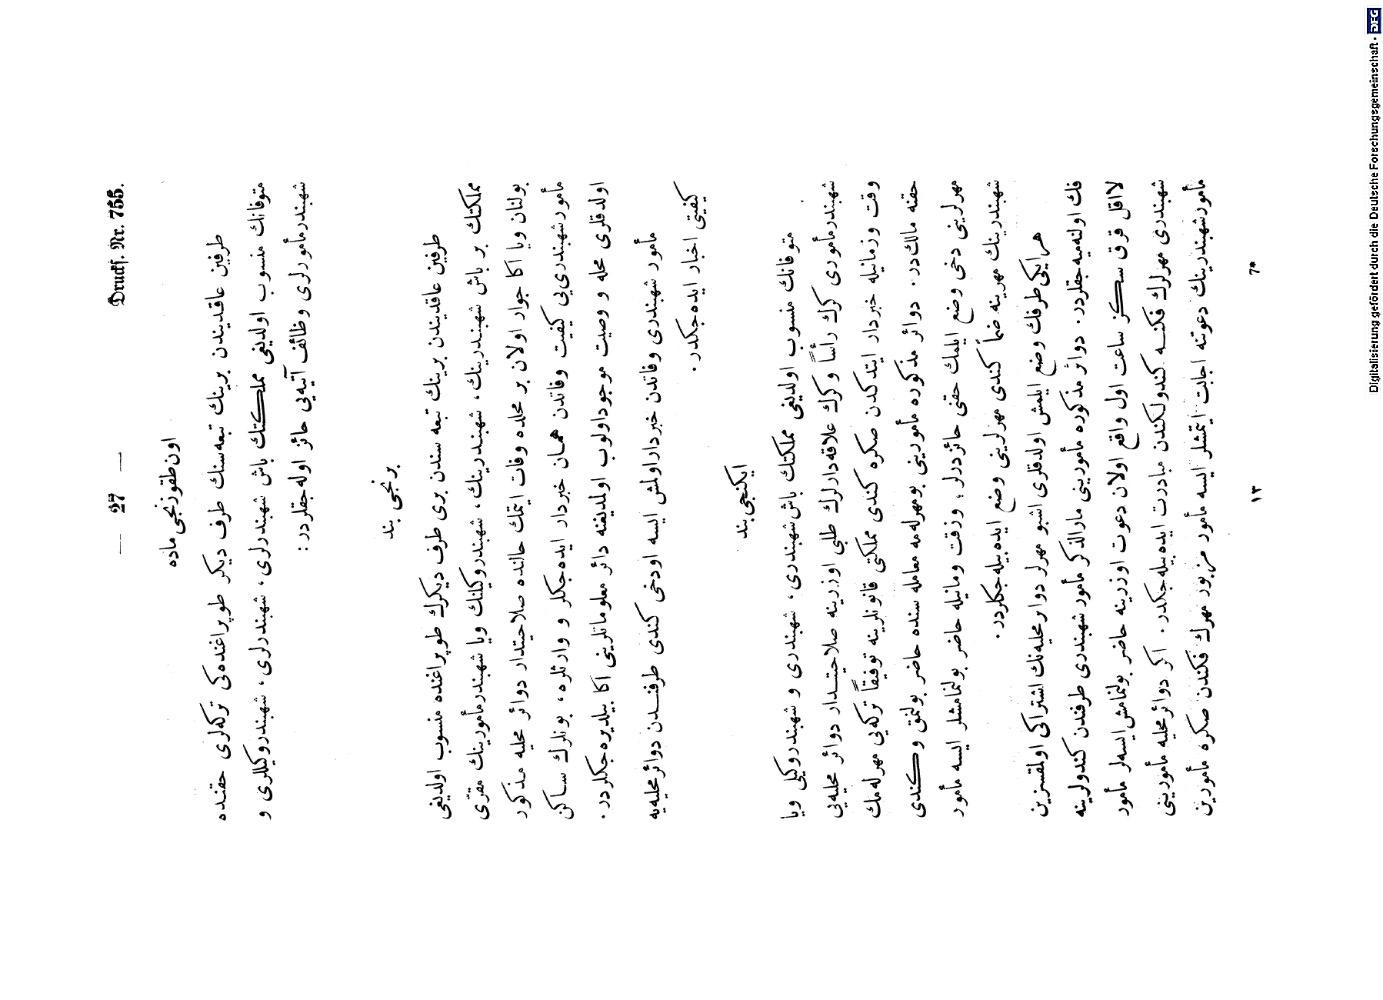 — 27 — Druckf. Nr. 755.
اون طقوزنجی ماده
طرفین عاقدیندن برینك تبعه‌سنك طرف دیكر طوپراغنده‌كی تركه‌لری حقنده
متوفانك منسوب اولدیغی مملكتك باش شهبندرلری، شهبندرلری، شهبندر وكیللری و
شهبندر مأمورلری وظائف آتیه‌یی حائز اوله‌جقلردر:
برنجی بند
طرفین عاقدیندن برینك تبعه سندن بری طرف دیكرك طوپراغنده منسوب اولدیغی
مملكتك بر باش شهبندرینك، شهبندرینك، شهبندر وكیلنك ویا شهبندر مأمورینك مقری
بولنان ویا اكا جوار اولان بر محلده وفات ایتمك حالنده صلاحیتدار دوائر محلیه مذكور
مأمور شهبندری‌یی كیفیت وفاتدن همان خبردار ایده‌جكلر و وارثلره، بونلرك ساكن
اولدقلری محله و وصیت موجود اولوب اولدیغنه دائر معلوماتلرینی اكا بیلدیره‌جكلردر.
مأمور شهبندری وفاتدن خبردار اولمش ایسه اودخی كندی طرفندن دوائر محلیه‌یه
كیفیتی اخبار ایده‌جكدر.
ایكنجی بند
متوفانك منسوب اولدیغی مملكتك باش شهبندری، شهبندری و شهبندر وكیلی ویا
شهبندر مأموری كرك رأساً و كرك علاقه‌دارلرك طلبی اوزرینه صلاحیتدار دوائر محلیه‌یی
وقت و زمانیله خبردار ایتدكدن صكره كندی مملكتی قانونلرینه توفیقاً تركه‌یی مهرله‌مك
حقنه مالكدر. دوائر مذكوره مأمورینی بومهرله‌مه معامله سنده حاضر بولنمق و كندی
مهرلرینی دخی وضع ایلمك حقنی حائزدرلر، و وقت و زمانیله حاضر بولنمامشلر ایسه مأمور
شهبندرینك مهرینه ضماً كندی مهرلرینی وضع ایده بیله‌جكلردر.
هر ایكی طرفك وضع ایلمش اولدقلری اشبو مهرلر دوائر محلیه‌نك اشتراكی اولمقسزین
فك اولنه‌میه‌جقلردر. دوائر مذكوره مأمورینی مارالذكر مأمور شهبندری طرفندن كندولرینه
لااقل قرق سكز ساعت اول واقع اولان دعوت اوزرینه حاضر بولنمامش ایسه‌لر مأمور
شهبندری مهرلرك فكنه كندولكندن مبادرت ایده بیله‌جكدر. اكر دوائر محلیه مأمورینی
مأمور شهبندرینك دعوتنه اجابت ایتمشلر ایسه مأمور مزبور مهرلرك فكندن صكره مأمورین
١٣
7*
Digitalisierung gefördert durch die Deutsche Forschungsgemeinschaft · DFG